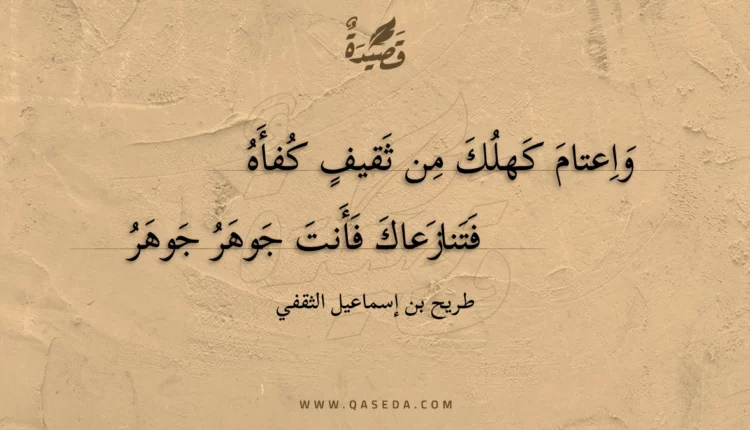 قَصِيدَةٌ
وَاِعتامَ كَهلُكَ مِن ثَقيفٍ كُفأَهُ
فَتَنازَعاكَ فَأَنتَ جَوهَرُ جَوهَرُ
طريح بن إسماعيل الثقفي
WWW.QASEDA.COM